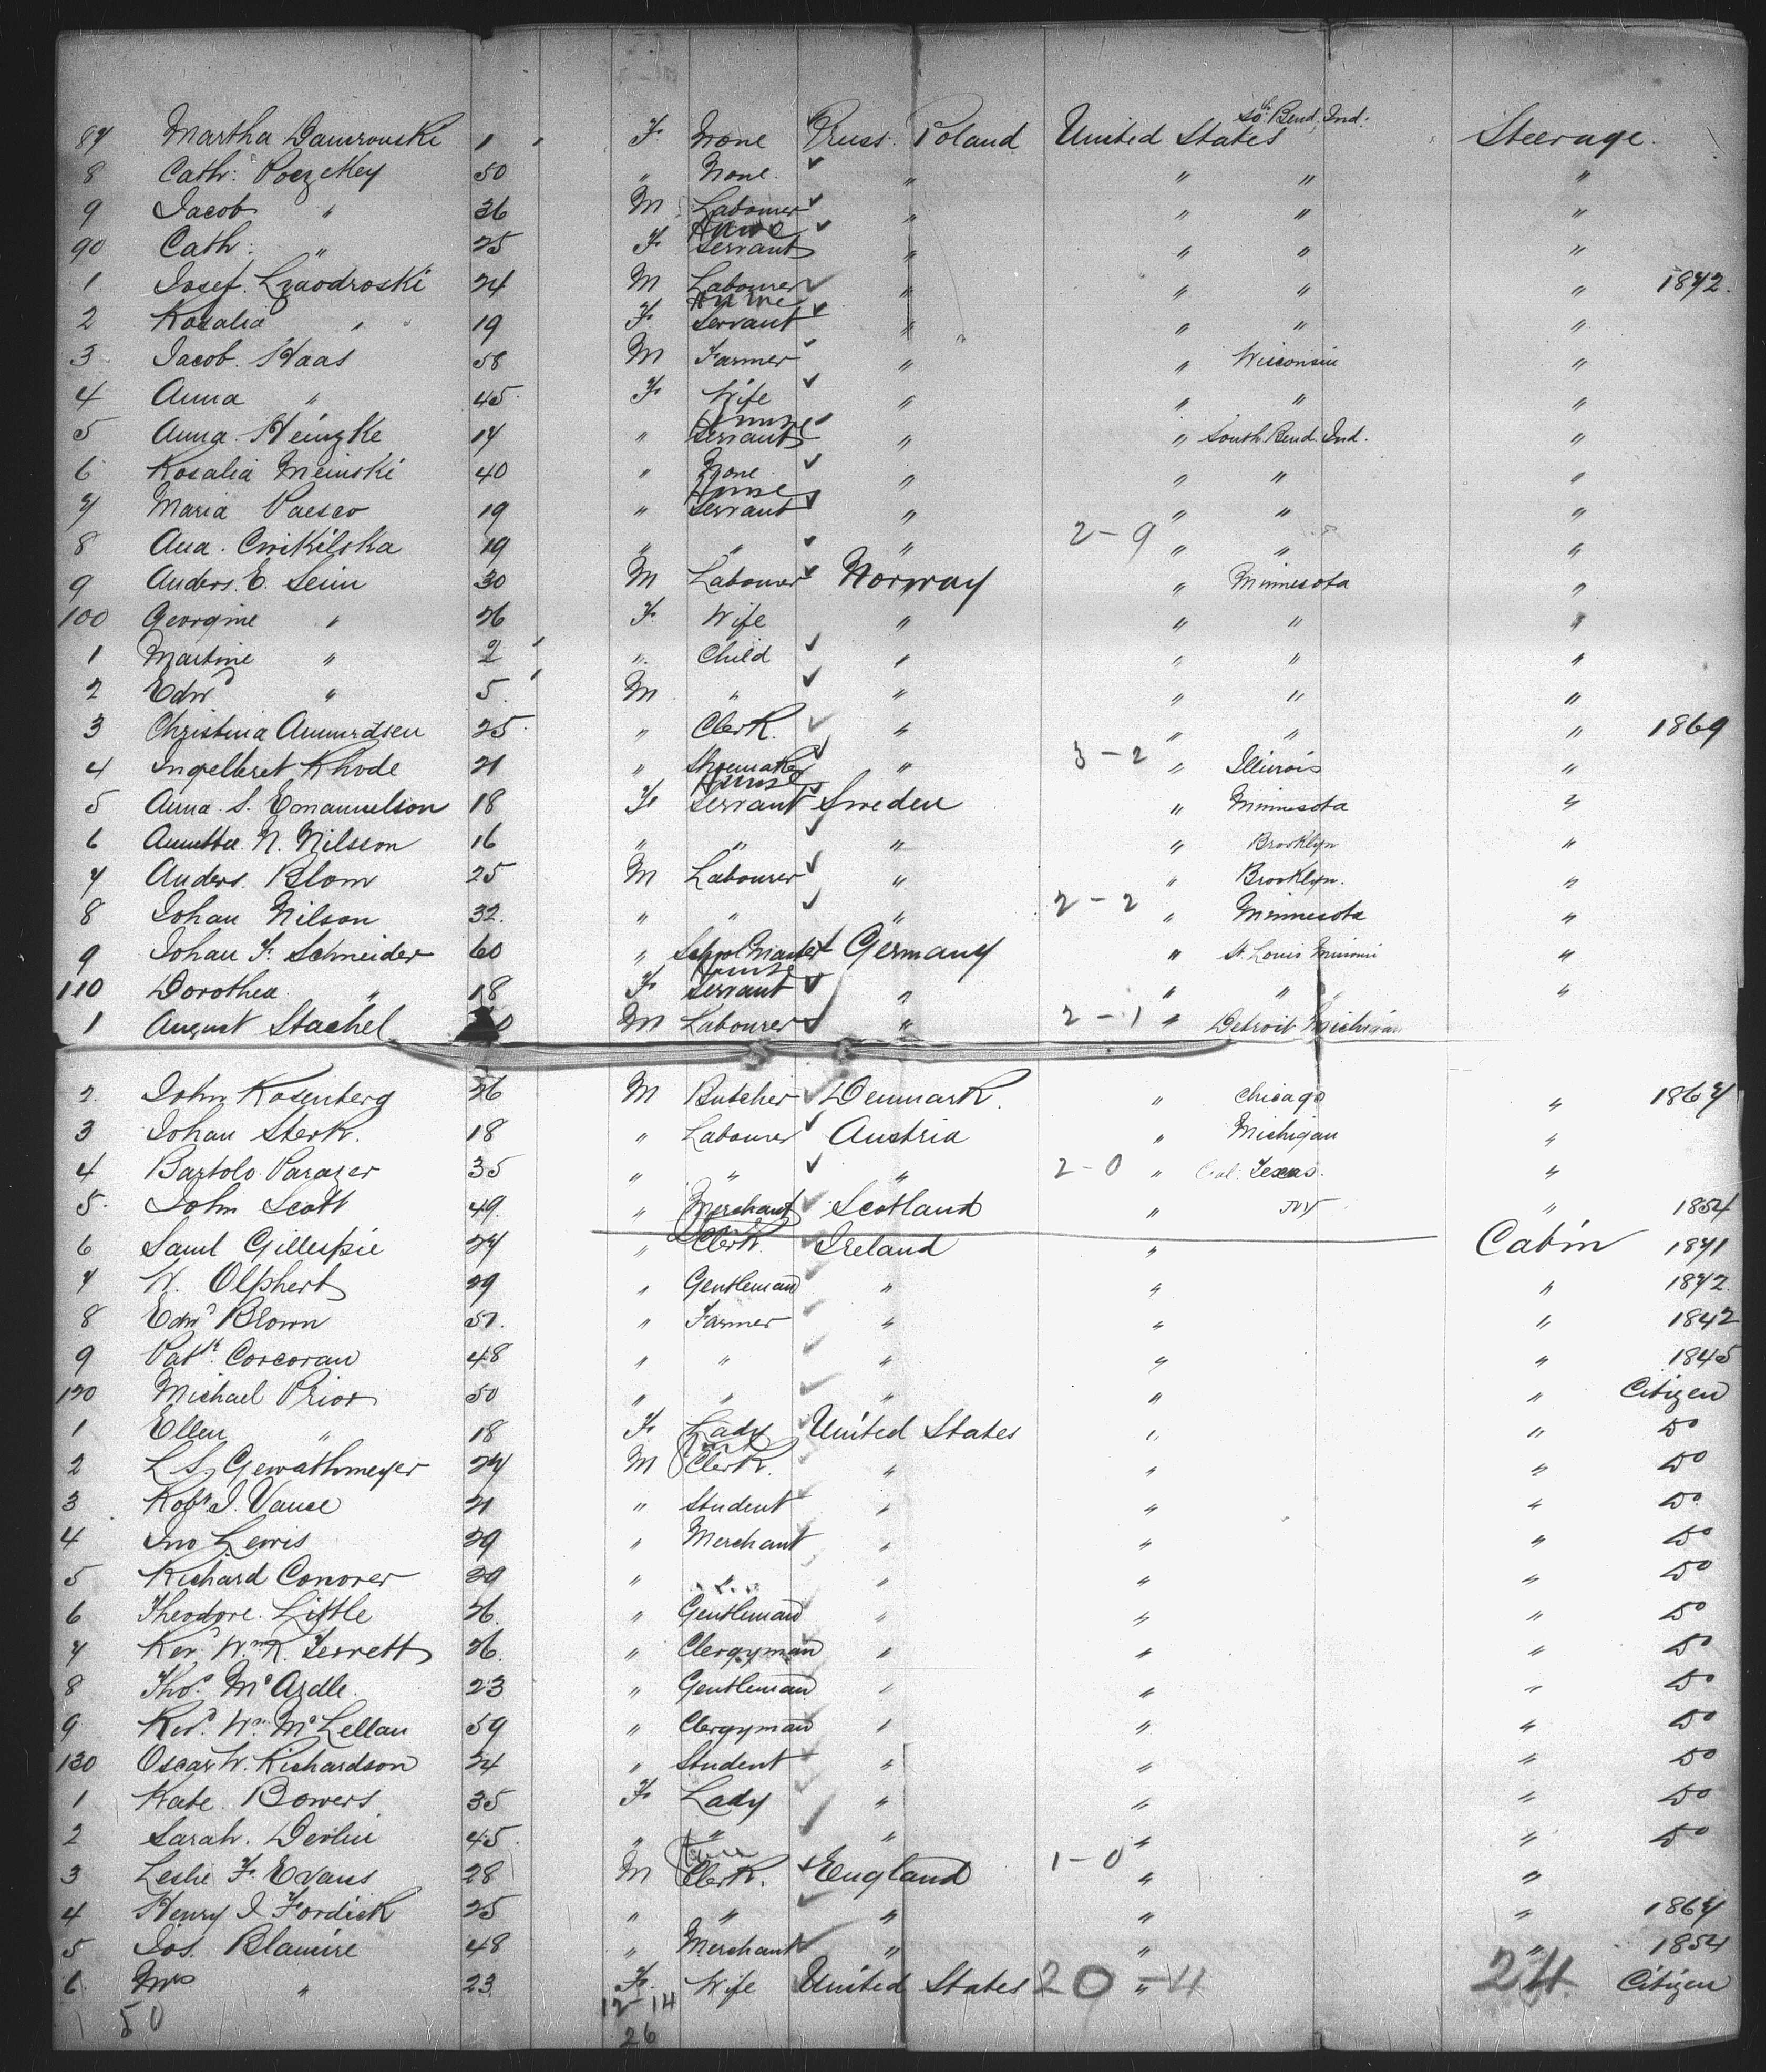 87 Martha Damrowski 1 F None Pruss. Poland United States So. Bend, Ind. Steerage.
8 Cath: Poczekey 50 " None. " " " "
9 Jacob " 36 M Labourer " " " "
90 Cath: " 25 F House Servant " " " "
1 Josef. 24 M Labourer " " " " 1872.
2 Rosalia " 19 F House Servant " " " "
3 Jacob. Haas 58 M Farmer " " Wisconsin "
4 Anna " 45 F Wife " " " "
5 Anna. Heingke 17 " House Servant " " South Bend. Ind. "
6 Rosalia Meinski 40 " None " " " "
7 Maria 19 " House Servant " " " "
8 Ana. Cwikilska 19 " " " 2-9 " " "
9 Anders. E. Seim 30 M Labourer Norway " Minnesota "
100 Georgine " 26 F Wife " " " "
1 Martine " 2 " Child " " " "
2 Edwd " 5 M " " " " "
3 Christina Amundsen 25 " Clerk. " " " " 1869
4 Ingelbret Rhode 21 " Shoemaker " 3-2 " Illinois "
5 Anna. S. Emanuelson 18 F House Servant Sweden " Minnesota "
6 Annetta. N. Nilsson 16 " " " " Brooklyn "
7 Anders. Blom 25 M Labourer " " Brooklyn. "
8 Johan Nilson 32. " " " 2-2 " Minnesota "
9 Johan F. Schneider 60 " School Master Germany " St. Louis Missouri "
110 Dorothea " 18 F House Servant " " " "
1 August Stachel M Labourer " 2-1 " Detroit Michigan
2. John Rosenberg 26 M Butcher Denmark. " Chicago " 1867
3 Johan Sterk. 18 " Labourer Austria " Michigan "
4 Bartolo Parazer 35 " " " 2-0 " Gal: Texas. "
5. John Scott 49 " Merchant Scotland " NY " 1854
6 Saml Gillespie 27 " Clerk. Ireland " Cabin 1871
7 W. Olphert 29 " Gentleman " " " 1872
8 Edwd Blown 57. " Farmer " " " 1842
9 Patk. Corcoran 48 " " " " " 1845
120 Michael Prior 50 " " " " " Citizen
1 Ellen " 18 F Lady United States " " Do
2 L. S. Gewathmeyer 27 M Clerk. " " " Do
3 Robt J. Vance 21 " Student " " " Do
4 Jno Lewis 29 " Merchant " " " Do
5 Richard Conover 39 " " " " " Do
6 Theodore. Little 26. " Gentleman " " " Do
7 Revd. Wm. R. Terrett 26. " Clergyman " " " Do
8 Thos. McArdle. 23 " Gentleman " " " Do
9 Revd. Wm. McLellan 59 " Clergyman " " " Do
130 Oscar W. Richardson 24 " Student " " " Do
1 Kate. Bowers 35 F Lady " " " Do
2 Sarah. Devlin 45 " " " " " Do
3 Leslie F. Evans 28 M Clerk. England 1-0 " "
4 Henry J Fordick 25 " " " " " 1867
5 Jos. Blamire 48 " Merchant " " " 1854
6. Mrs " 23 F. Wife United States 20 " -4 24 Citizen
50 12-14
26